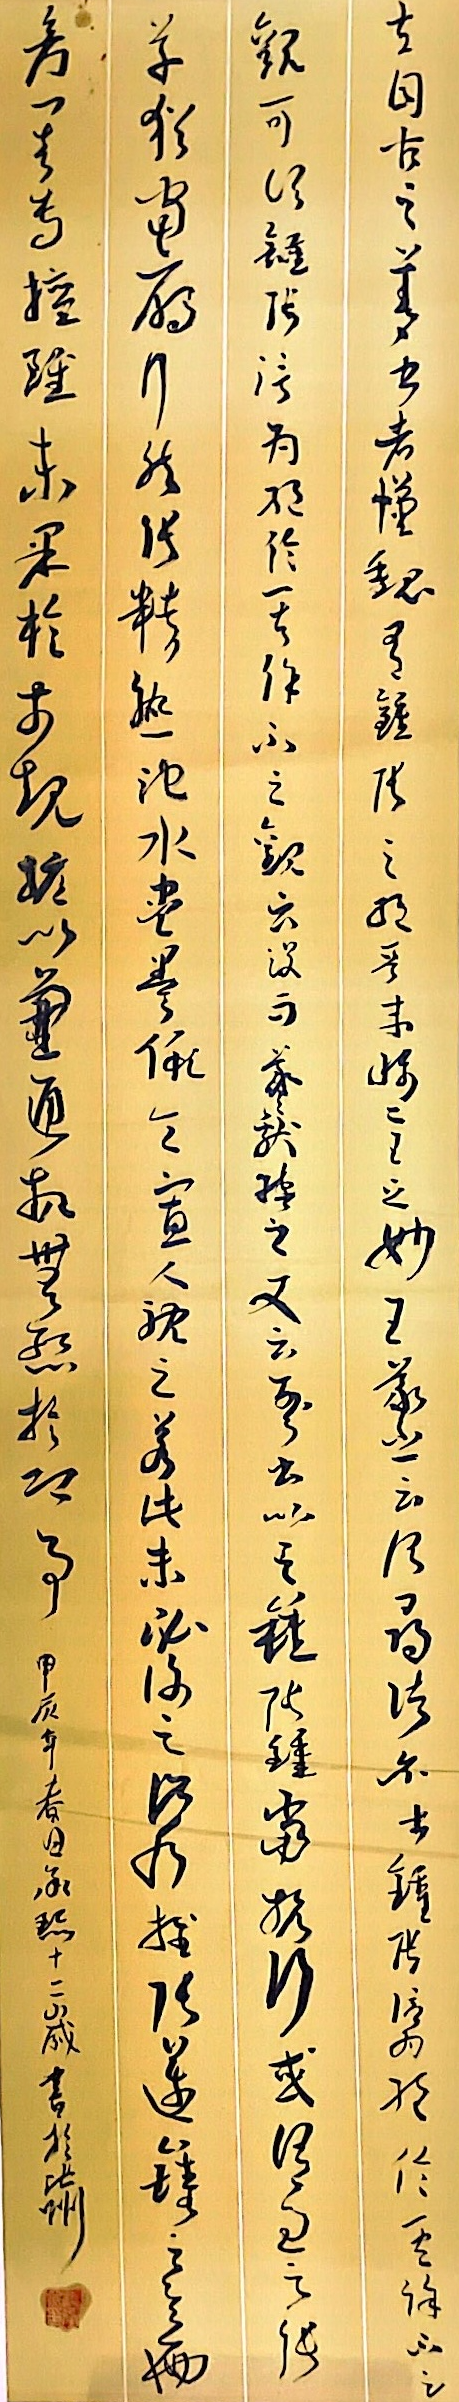 夫自古之善書者漢魏有鍾張之絕晉末稱二王之妙王羲之云頃尋諸名書鍾張信為絕倫其餘不足
觀可謂鍾張信為絕倫其餘不足觀云沒而羲獻繼之又云吾書比之鍾張鍾當抗行或謂過之張
草猶當雁行然張精熟池水盡墨假令寡人耽之若此未必謝之此乃推張邁鍾之意也
考其專擅雖未果於前規摭以兼通故無慚於即事
甲辰年春日十二歲書於